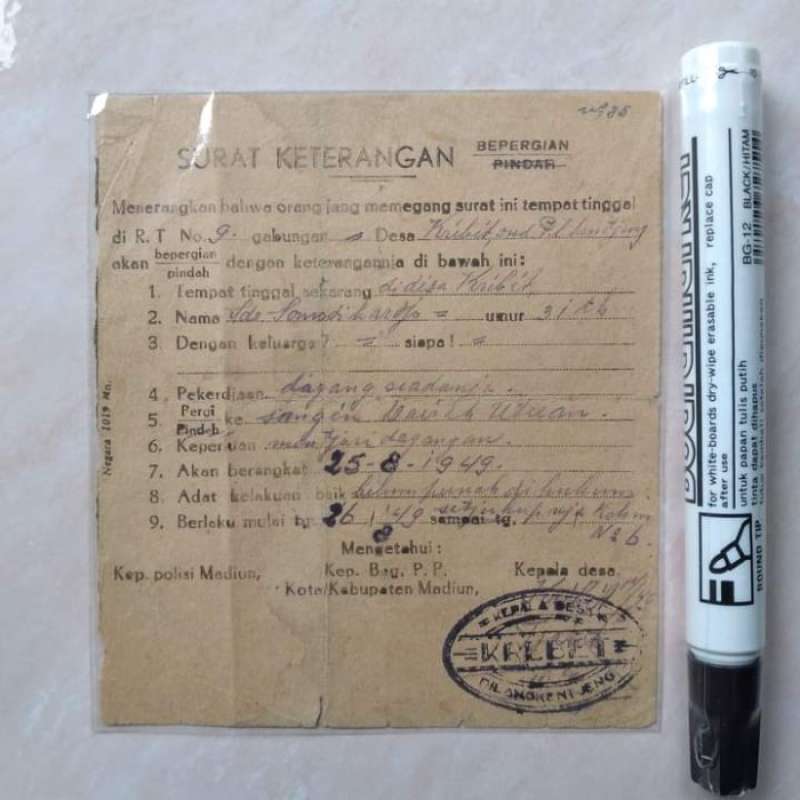 SURAT KETERANGAN BEPERGIAN
PINDAH
Menerangkan bahwa orang jang memegang surat ini tempat tinggal
di R. T No. 9. gabungan = Desa
akan bepergian
pindah
dengan keterangannja di bawah ini:
1. Tempat tinggal sekarang didesa Kribit
2. Nama Sdr Somodihardjo = umur 31 th
3 Dengan keluarga? = siapa! =
4 Pekerdjaan dagang seadanja.
5. Pergi
Pindah
ke
6. Keperluan mentjari dagangan.
7. Akan berangkat 25-8-1949.
8. Adat kelakuan baik belum pernah di hukum.
9. Berlaku mulai tg. 26 8 '49 sampai tg. setjukupnja Kolom
No 6.
Mengetahui :
Kep. polisi Madiun, Kep. Bag. P. P. Kepala desa.
Kota/Kabupaten Madiun,
KEPALA DESA
Negara 1019 Mn.
for white-boards dry-wipe erasable ink, replace cap
after use
BG-12 BLACK/HITAM
untuk papan tulis putih
tinta dapat dihapus
ROUND TIP